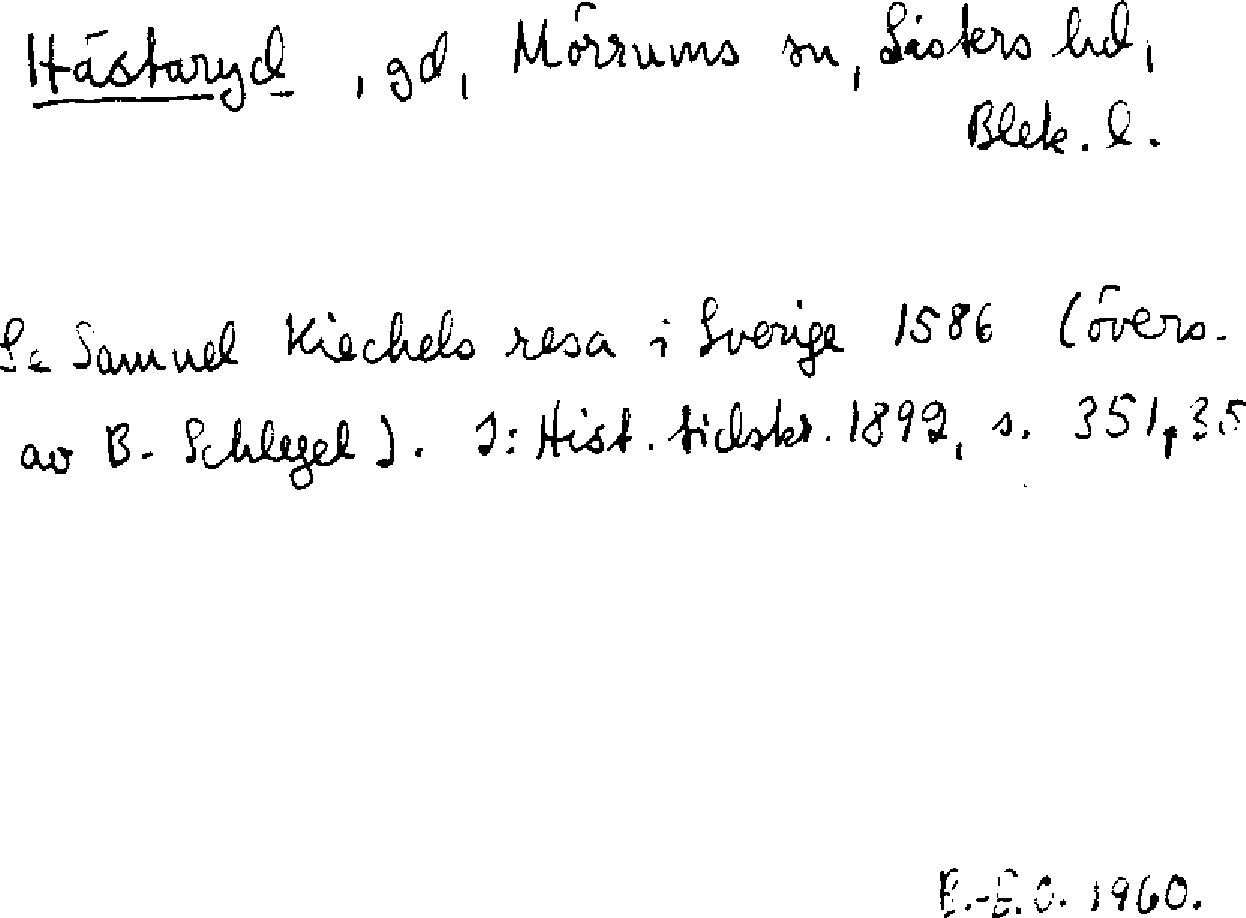 Hästaryd, gd, Mörrums sn, Listers hd,
Blek. l.
Se Samuel Kiechels resa i Sverige 1586 (övers.
av B. Schlegel). I: Hist. tidskr. 1892, s. 351, 35
E.-E.O. 1960.